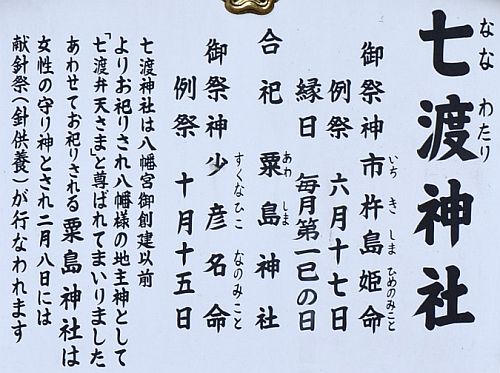 七渡神社
なな わたり
御祭神 市杵島姫命
いち き しま ひめのみこと
例祭 六月十七日
縁日 毎月第一巳の日
合祀 粟島神社
あわ しま
御祭神 少彦名命
すくなひこ なのみこと
例祭 十月十五日
七渡神社は八幡宮御創建以前
よりお祀りされ八幡様の地主神として
「七渡弁天さま」と尊ばれてまいりました
あわせてお祀りされる粟島神社は
女性の守り神とされ二月八日には
献針祭(針供養)が行なわれます